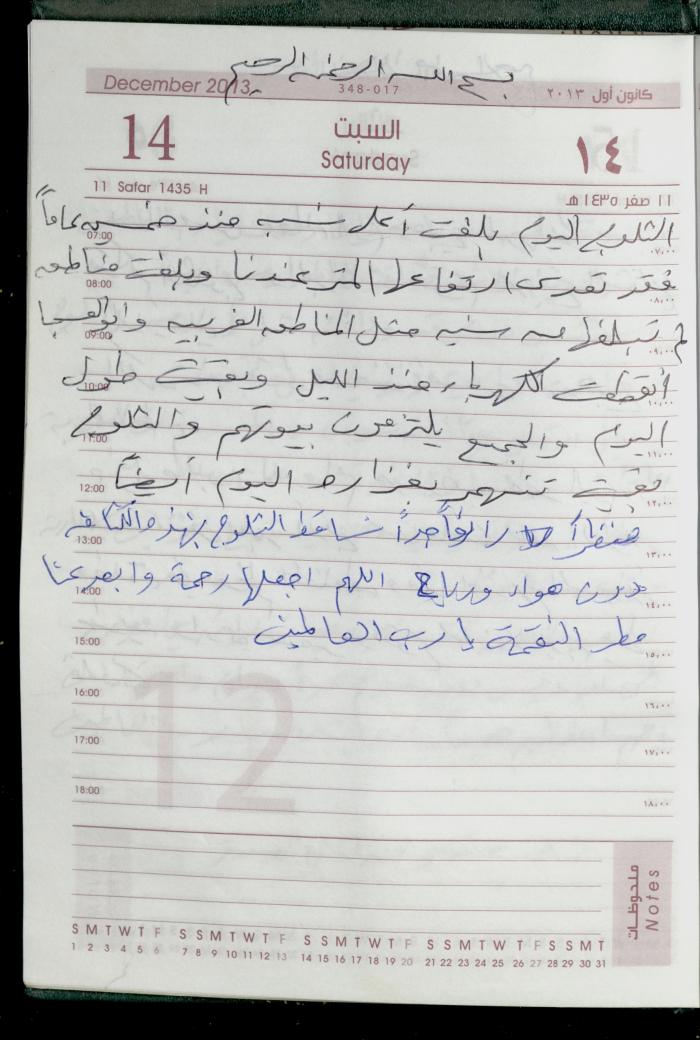 بسم الله الرحمن الرحيم
December 2013 348-017 كانون أول ٢٠١٣
14 السبت ١٤
Saturday
11 Safar 1435 H ١١ صفر ١٤٣٥ هـ
الثلوج اليوم بلغت أعلى نسبه منذ خمسين عاماً
07:00 ٠٧،٠٠
فقد تعدى ارتفاعها المتر عندنا وبلغت مناطق
08:00 ٠٨،٠٠
لم تبلغها من سنين مثل المناطق الغربيه
09:00 ٠٩،٠٠
أنقطعت الكهرباء منذ الليل وبقيت طول
10:00 ١٠،٠٠
اليوم والجميع يلتزمون بيوتهم والثلوج
11:00 ١١،٠٠
بقيت تنهمر بغزاره اليوم أيضاً
12:00 ١٢،٠٠
منظراً رائعاً جداً تساقط الثلوج بهذه الكثافه
13:00 ١٣،٠٠
بدون هواء ورياح اللهم اجعلها رحمة وابعد عنا
14:00 ١٤،٠٠
مطر النقمة يا رب العالمين
15:00 ١٥،٠٠
16:00 ١٦،٠٠
17:00 ١٧،٠٠
18:00 ١٨،٠٠
12
ملحوظات
Notes
S M T W T F S S M T W T F S S M T W T F S S M T W T F S S M T
1 2 3 4 5 6 7 8 9 10 11 12 13 14 15 16 17 18 19 20 21 22 23 24 25 26 27 28 29 30 31